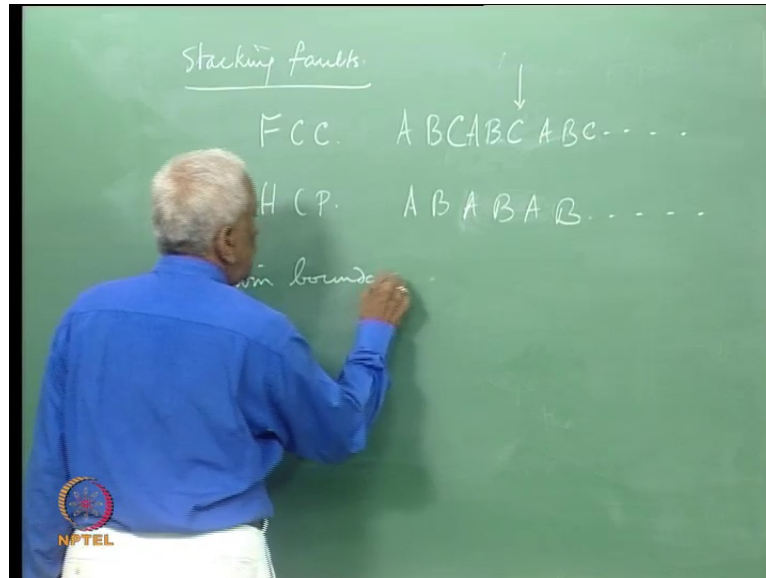 Stacking faults.
FCC. ABCABCABC----.
HCP. ABABAB.....
bounda
NPTEL